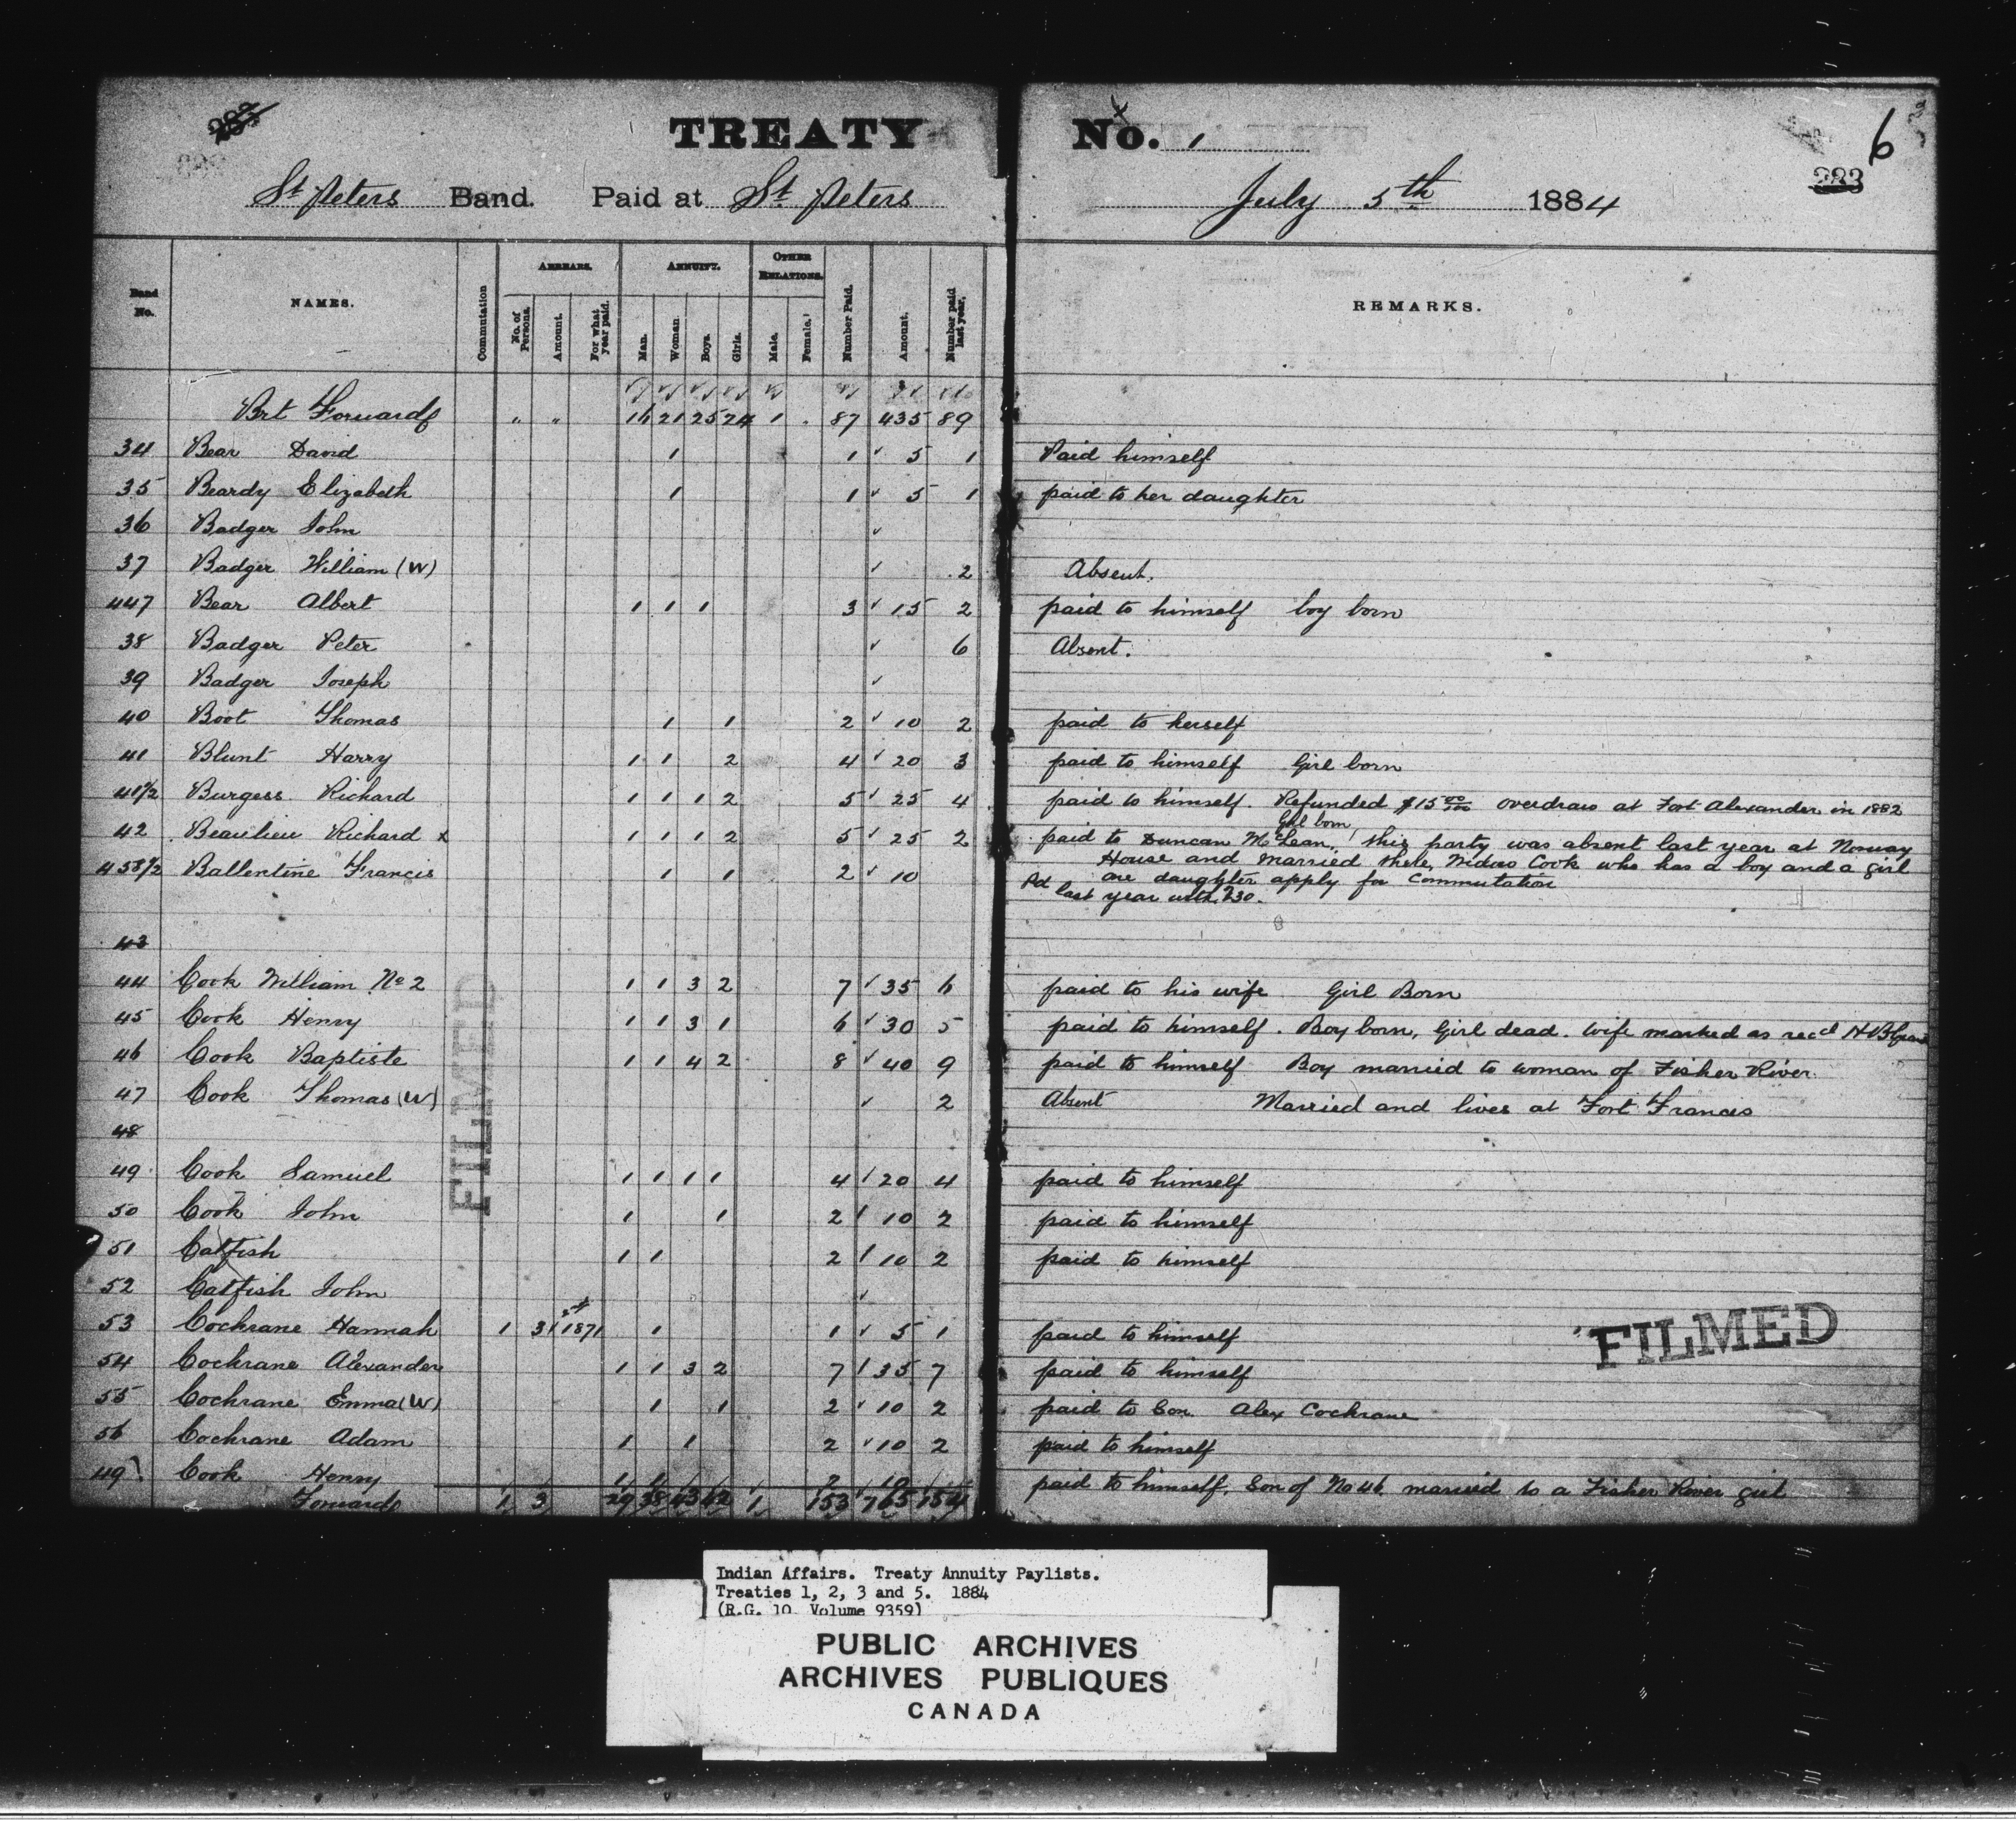 TREATY No. 1
6
283
St Peters Band. Paid at St. Peters July 5th 1884
Band No. NAMES. Commutation ARREARS. No. of Persons. Amount. For what year paid. ANNUITY. Man. Woman Boys. Girls. OTHER RELATIONS. Male. Female. Number Paid. Amount. Number paid last year, REMARKS.
Brt Forward " " 16 21 25 24 1 . 87 435 89
34 Bear David 1 1 ✓ 5 1 Paid himself
35 Beardy Elizabeth 1 1 ✓ 5 1 paid to her daughter
36 Badger John ✓
37 Badger William (W) ✓ 2 Absent.
447 Bear Albert 1 1 1 3 ✓ 15 2 paid to himself boy born
38 Badger Peter ✓ 6 Absent.
39 Badger Joseph ✓
40 Boot Thomas 1 1 2 ✓ 10 2 paid to herself
41 Blunt Harry 1 1 2 4 ✓ 20 3 paid to himself Girl born
41½ Burgess Richard 1 1 1 2 5 ✓ 25 4 paid to himself. Refunded $15 00/100 overdraw at Fort Alexander in 1882
Girl born
42 Beaulieu Richard x 1 1 1 2 5 ✓ 25 2 paid to Duncan McLean, this party was absent last year at Norway
House and married there, Widow Cook who has a boy and a girl
458½ Ballentine Francis 1 1 2 ✓ 10 one daughter apply for Commutation
Pd last year with 230.
43
44 Cook William No 2 1 1 3 2 7 ✓ 35 6 paid to his wife Girl Born
45 Cook Henry 1 1 3 1 6 ✓ 30 5 paid to himself. Boy born, Girl dead. Wife marked as recd H B
46 Cook Baptiste 1 1 4 2 8 ✓ 40 9 paid to himself Boy married to woman of Fisher River.
47 Cook Thomas (W) ✓ 2 Absent Married and lives at Fort Francis
48
49 Cook Samuel 1 1 1 1 4 ✓ 20 4 paid to himself
50 Cook John 1 1 2 ✓ 10 2 paid to himself
51 Catfish 1 1 2 ✓ 10 2 paid to himself
52 Catfish John ✓
53 Cochrane Hannah 1 3 1871 1 1 ✓ 5 1 paid to himself
54 Cochrane Alexander 1 1 3 2 7 ✓ 35 7 paid to himself
55 Cochrane Emma (W) 1 1 2 ✓ 10 2 paid to Son Alex Cochrane
56 Cochrane Adam 1 1 2 ✓ 10 2 paid to himself
49 Cook Henry 1 1 2 10 paid to himself, Son of No 46 married to a Fisher River girl
Forward 1 3 29 38 43 42 1 153 765 154
FILMED
FILMED
Indian Affairs. Treaty Annuity Paylists.
Treaties 1, 2, 3 and 5. 1884
(R.G. 10 Volume 9359)
PUBLIC ARCHIVES
ARCHIVES PUBLIQUES
CANADA